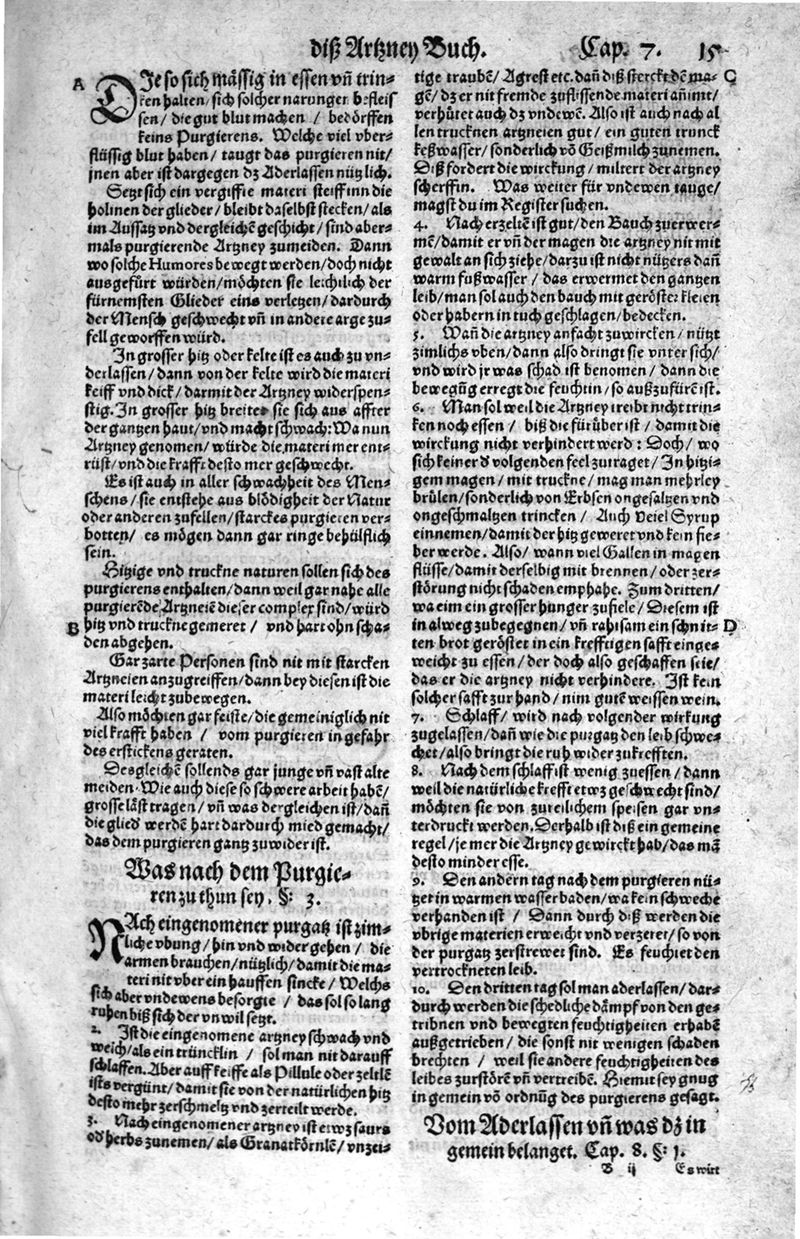 diß Artzney Buch. Cap. 7. 15
A
DIe so sich mässig in essen vñ trin⸗
ken halten/ sich solcher narungen befleis
sen/ die gut blut machen/ bedörffen
keins Purgierens. Welche viel vber⸗
flüssig blut haben/ taugt das purgieren nit/
jnen aber ist dargegen dz Aderlassen nützlich.
Setzt sich ein vergiffte materi steiff inn die
holinen der glieder/ bleibt daselbst stecken/ als
im Aussatz vnd dergleichē geschicht/ sind aber⸗
mals purgierende Artzney zumeiden. Dann
wo solche Humores bewegt werden/ doch nicht
ausgefürt würden/ möchten sie leichtlich der
fürnemsten Glieder eins verletzen/ dardurch
der Mensch geschwecht vñ in andere arge zu⸗
fell geworffen würd.
In grosser hitz oder kelte ist es auch zu vn⸗
derlassen/ dann von der kelte wird die materi
keiff vnd dick/ darmit der Artzney widerspen⸗
stig. In grosser hitz breitet sie sich aus affter
der gantzen haut/ vnd macht schwach: Wa nun
Artzney genomen/ würde die materi mer ent⸗
rüst/ vnd die krafft desto mer geschwecht.
Es ist auch in aller schwachheit des Men⸗
schens/ sie entstehe aus blödigheit der Natur
oder anderen zufellen/ starckes purgieren ver⸗
botten/ es mögen dann gar ringe behülflich
sein.
Hitzige vnd truckne naturen sollen sich des
purgierens enthalten/ dann weil gar nahe alle
purgierēde Artzneiē dieser complex sind/ würd
B
hitz vnd truckne gemeret/ vnd hart ohn scha⸗
den abgehen.
Gar zarte Personen sind nit mit starcken
Artzneien anzugreiffen/ dann bey diesen ist die
materi leicht zubewegen.
Also möchten gar feiste/ die gemeiniglich nit
viel krafft haben/ vom purgieren in gefahr
des erstickens geraten.
Desgleichē sollends gar junge vñ vast alte
meiden. Wie auch diese so schwere arbeit habē/
grosse läst tragen/ vñ was dergleichen ist/ dañ
die glied werdē hart dardurch mied gemacht/
das dem purgieren gantz zuwider ist.
Was nach dem Purgie⸗
ren zu thun sey. §: 3.
NAch eingenomener purgatz ist zim⸗
liche vbung/ hin vnd wider gehen/ die
armen brauchen/ nützlich/ damit die ma⸗
teri nit vber ein hauffen sincke/ Welchs
sich aber vndewens besorgte/ das sol so lang
ruhen biß sich der vnwil setzt.
2. Ist die eingenomene artzney schwach vnd
weich/ als ein trüncklin/ sol man nit darauff
schlaffen. Aber auff keiffe als Pillule oder zeltlē
ists vergünt/ damit sie von der natürlichen hitz
desto mehr zerschmeltz vnd zerteilt werde.
3. Nach eingenomener artzney ist etwz saurs
od herbs zunemen/ als Granatkörnlē/ vnzei⸗
tige traubē/ Agrest etc. dañ diß sterckt dē ma⸗ C
gē/ dz er nit fremde zuflissende materi añimt/
verhütet auch dz vndewē. Also ist auch nach al
len trucknen artzneien gut/ ein guten trunck
keßwasser/ sonderlich vō Geißmilch zunemen.
Diß fordert die wirckung/ miltert der artzney
scherffin. Was weiter für vndewen tauge/
magst du im Register suchen.
4. Nach erzeltē ist gut/ den Bauch zuerwer⸗
mē/ damit er vñ der magen die artzney nit mit
gewalt an sich ziehe/ darzu ist nicht nützers dañ
warm fußwasser/ das erwermet den gantzen
leib/ man sol auch den bauch mit geröster kleien
oder habern in tuch geschlagen/ bedecken.
5. Wañ die artzney anfacht zuwircken/ nützt
zimlichs vben/ dann also dringt sie vnter sich/
vnd wird jr was schad ist benomen/ dann die
bewegūg erregt die feuchtin/ so außzufürē ist.
6. Man sol weil die Artzney treibt nicht trin⸗
ken noch essen/ biß die fürüber ist/ damit die
wirckung nicht verhindert werd: Doch/ wo
sich keiner d volgenden feel zutraget/ In hitzi⸗
gem magen/ mit truckne/ mag man mehrley
brülen/ sonderlich von Erbsen ongesaltzen vnd
ongeschmaltzen trincken/ Auch Veiel Syrup
einnemen/ damit der hitz geweret vnd kein fie⸗
ber werde. Also/ wann viel Gallen in magen
flüsse/ damit derselbig mit brennen/ oder zer⸗
störung nicht schaden emphahe. Zum dritten/
wa eim ein grosser hunger zufiele/ Diesem ist
in alweg zubegegnen/ vñ rahtsam ein schnit⸗ D
ten brot geröstet in ein krefftigen safft einge⸗
weicht zu essen/ der doch also geschaffen seie/
das er die artzney nicht verhindere. Ist kein
solcher safft zur hand/ nim gutē weissen wein.
7. Schlaff/ wird nach volgender wirkung
zugelassen/ dañ wie die purgatz den leib schwe⸗
chet/ also bringt die ruh wider zu krefften.
8. Nach dem schlaff ist wenig zuessen/ dann
weil die natürliche krefft etwz geschwecht sind/
möchten sie von zureilichem speisen gar vn⸗
terdruckt werden. Derhalb ist diß ein gemeine
regel/ je mer die Artzney gewirckt hab/ das mā
desto minder esse.
9. Den andern tag nach dem purgieren nü⸗
tzet in warmen wasser baden/ wa kein schweche
verhanden ist/ Dann durch diß werden die
vbrige materien erweicht vnd verzetet/ so von
der purgatz zerstrewet sind. Es feuchtet den
vertrockneten leib.
10. Den dritten tag sol man aderlassen/ dar⸗
durch werden die schedliche dämpf von den ge⸗
tribnen vnd bewegten feuchtigheiten erhabē
außgetrieben/ die sonst nit wenigen schaden
brechten/ weil sie andere feuchtigheiten des
leibes zurstörē vñ vertreibē. Hiemit sey gnug
in gemein vō ordnūg des purgierens gesagt.
Vom Aderlassen vñ was dz in
gemein belanget. Cap. 8. §: 1.
B ij Es wirt